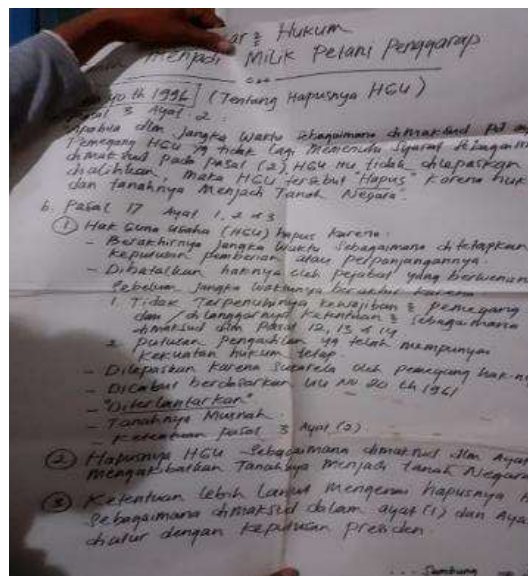 Hukum
Menjadi Milik Petani Penggarap
th 1996 (Tentang Hapusnya HGU)
Pasal 3 Ayat 2:
Apabila dlm jangka waktu sebagaimana dimaksud
Pemegang HGU yg tidak lagi memenuhi syarat sebagaim
dimaksud pada pasal (2), HGU itu tidak dilepaskan
dialihkan, maka HGU tersebut "Hapus" karena huk
dan tanahnya Menjadi Tanah Negara".
b. Pasal 17 Ayat 1, 2 d 3
① Hak Guna Usaha (HGU) hapus karena:
- Berakhirnya jangka waktu sebagaimana ditetapkan
keputusan pemberian atau perpanjangannya.
- Dibatalkan haknya oleh pejabat yang berwenang
sebelum jangka waktunya berakhir karena
1. Tidak Terpenuhinya kewajiban² pemegang
dan / dilanggarnya ketentuan² sebagaimana
dimaksud dlm Pasal 12, 13 d 14
2. putusan pengadilan yg telah mempunyai
kekuatan hukum tetap.
- Dilepaskan karena sukarela oleh pemegang hak
- Dicabut berdasarkan UU No 20 th 1961
- "Diterlantarkan"
- Tanahnya Musnah.
- Ketentuan pasal 3 Ayat (2).
② Hapusnya HGU sebagaimana dimaksud dlm Ayat
mengakibatkan Tanahnya menjadi tanah Negara
③ Ketentuan lebih lanjut mengenai hapusnya
sebagaimana dimaksud dalam ayat (1) dan Aya
diatur dengan keputusan presiden.
... Sambung